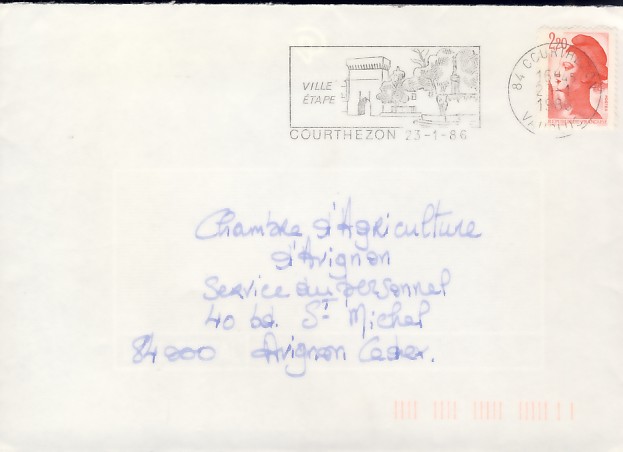 VILLE
ÉTAPE
COURTHEZON 23-1-86
2,20
84 COURTHE
16
VAUCLUSE
Chambre d'Agriculture
d'Avignon
Service du personnel
40 bd. St Michel
84000 Avignon Cedex.